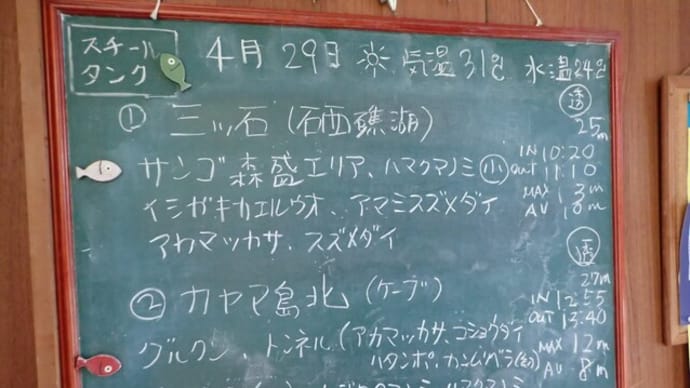 スチール
タンク
4月 29日 ☀ 気温31℃ 水温24℃
① 三ッ石(石西礁湖)
透
25m
サンゴ森盛エリア、ハマクマノミ小
イシガキカエルウオ、アマミスズメダイ
アカマツカサ、スズメダイ
IN 10:20
OUT 11:10
MAX 13m
AV 10m
② カヤマ島北 (ケーブ)
透
27m
グルクン、トンネル(アカマツカサ、コショウダイ
ハタンポ、カンムリベラ(幼)
IN 12:55
OUT 13:40
MAX 12m
AV 8m